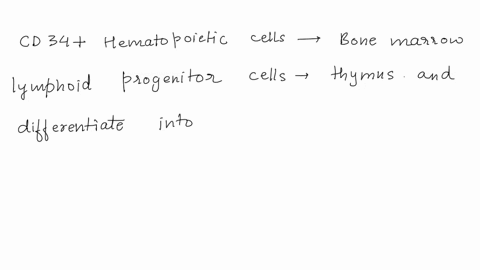 CD 34+ Hematopoietic cells → Bone marrow
lymphoid progenitor cells → thymus and
differentiate into